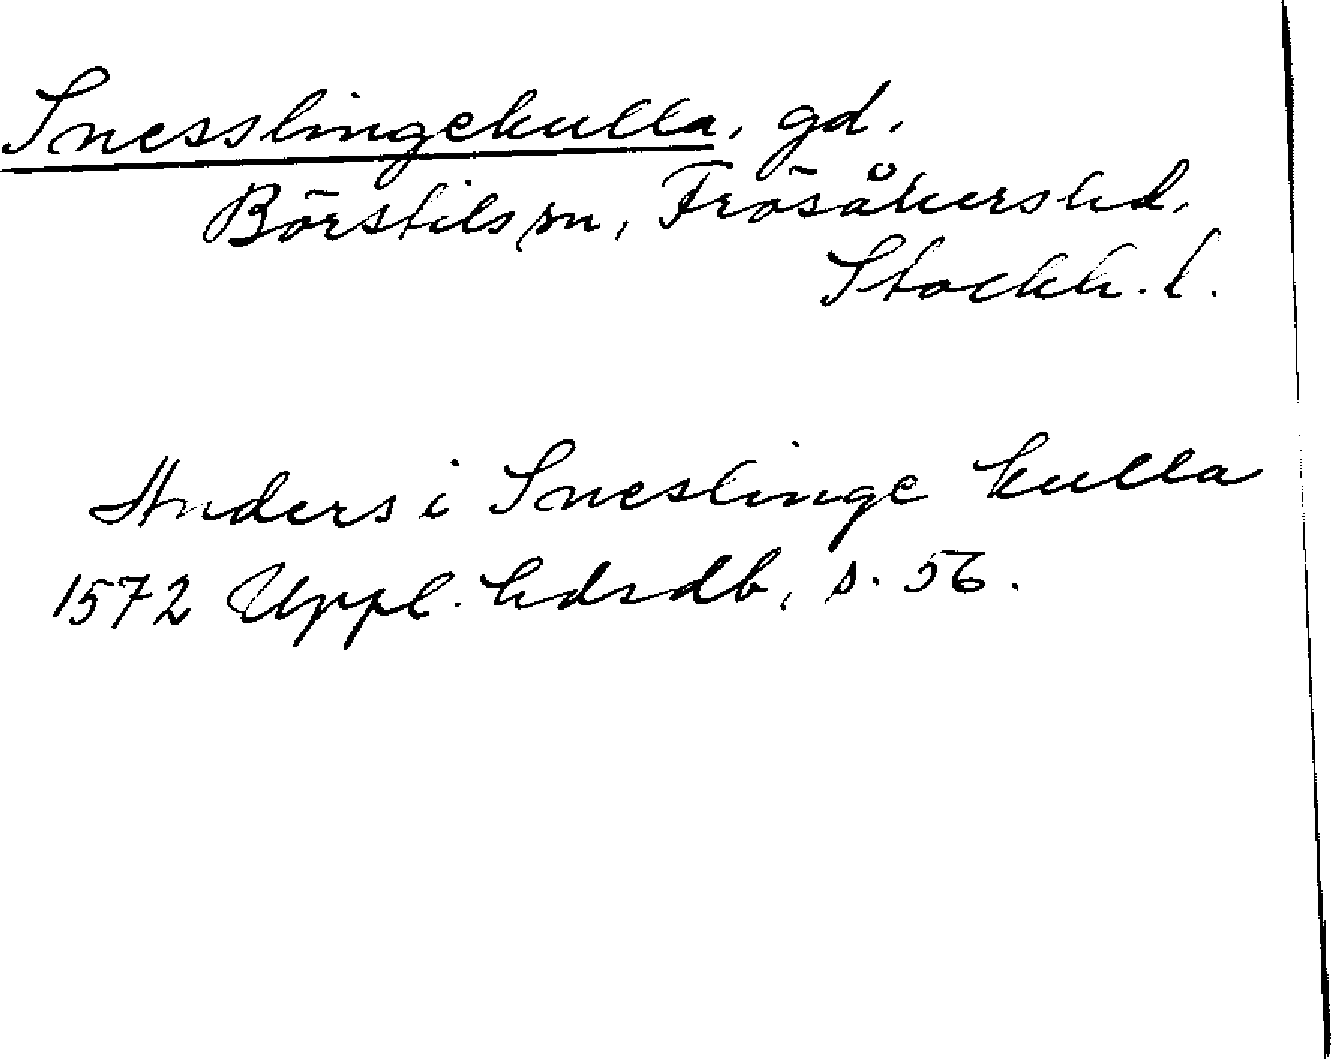 Snesslingekulla, gd.
Börstils sn, Frösåkers hd.
Stockh. l.
Anders i Sneslinge kulla
1572 Uppl. hdrdb, s. 56.